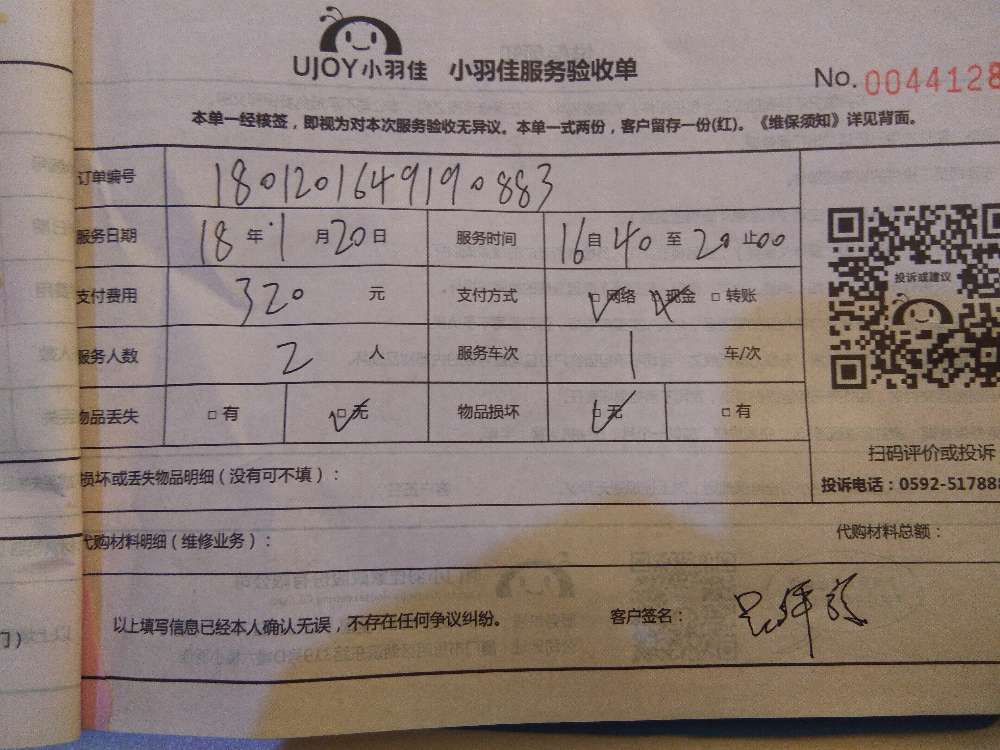 UJOY小羽佳 小羽佳服务验收单
No. 0044128
本单一经核签，即视为对本次服务验收无异议。本单一式两份，客户留存一份(红)。《维保须知》详见背面。
订单编号 1801201649190883
服务日期 18 年 1 月 20 日 服务时间 16 自 40 至 20 止 00
支付费用 320 元 支付方式 □ 网络 □ 现金 □ 转账
服务人数 2 人 服务车次 1 车/次
物品丢失 □ 有 □ 无 物品损坏 □ 无 □ 有
投诉或建议
扫码评价或投诉
损坏或丢失物品明细（没有可不填）：
投诉电话：0592-517888
代购材料明细（维修业务）： 代购材料总额：
以上填写信息已经本人确认无误，不存在任何争议纠纷。 客户签名：
门）